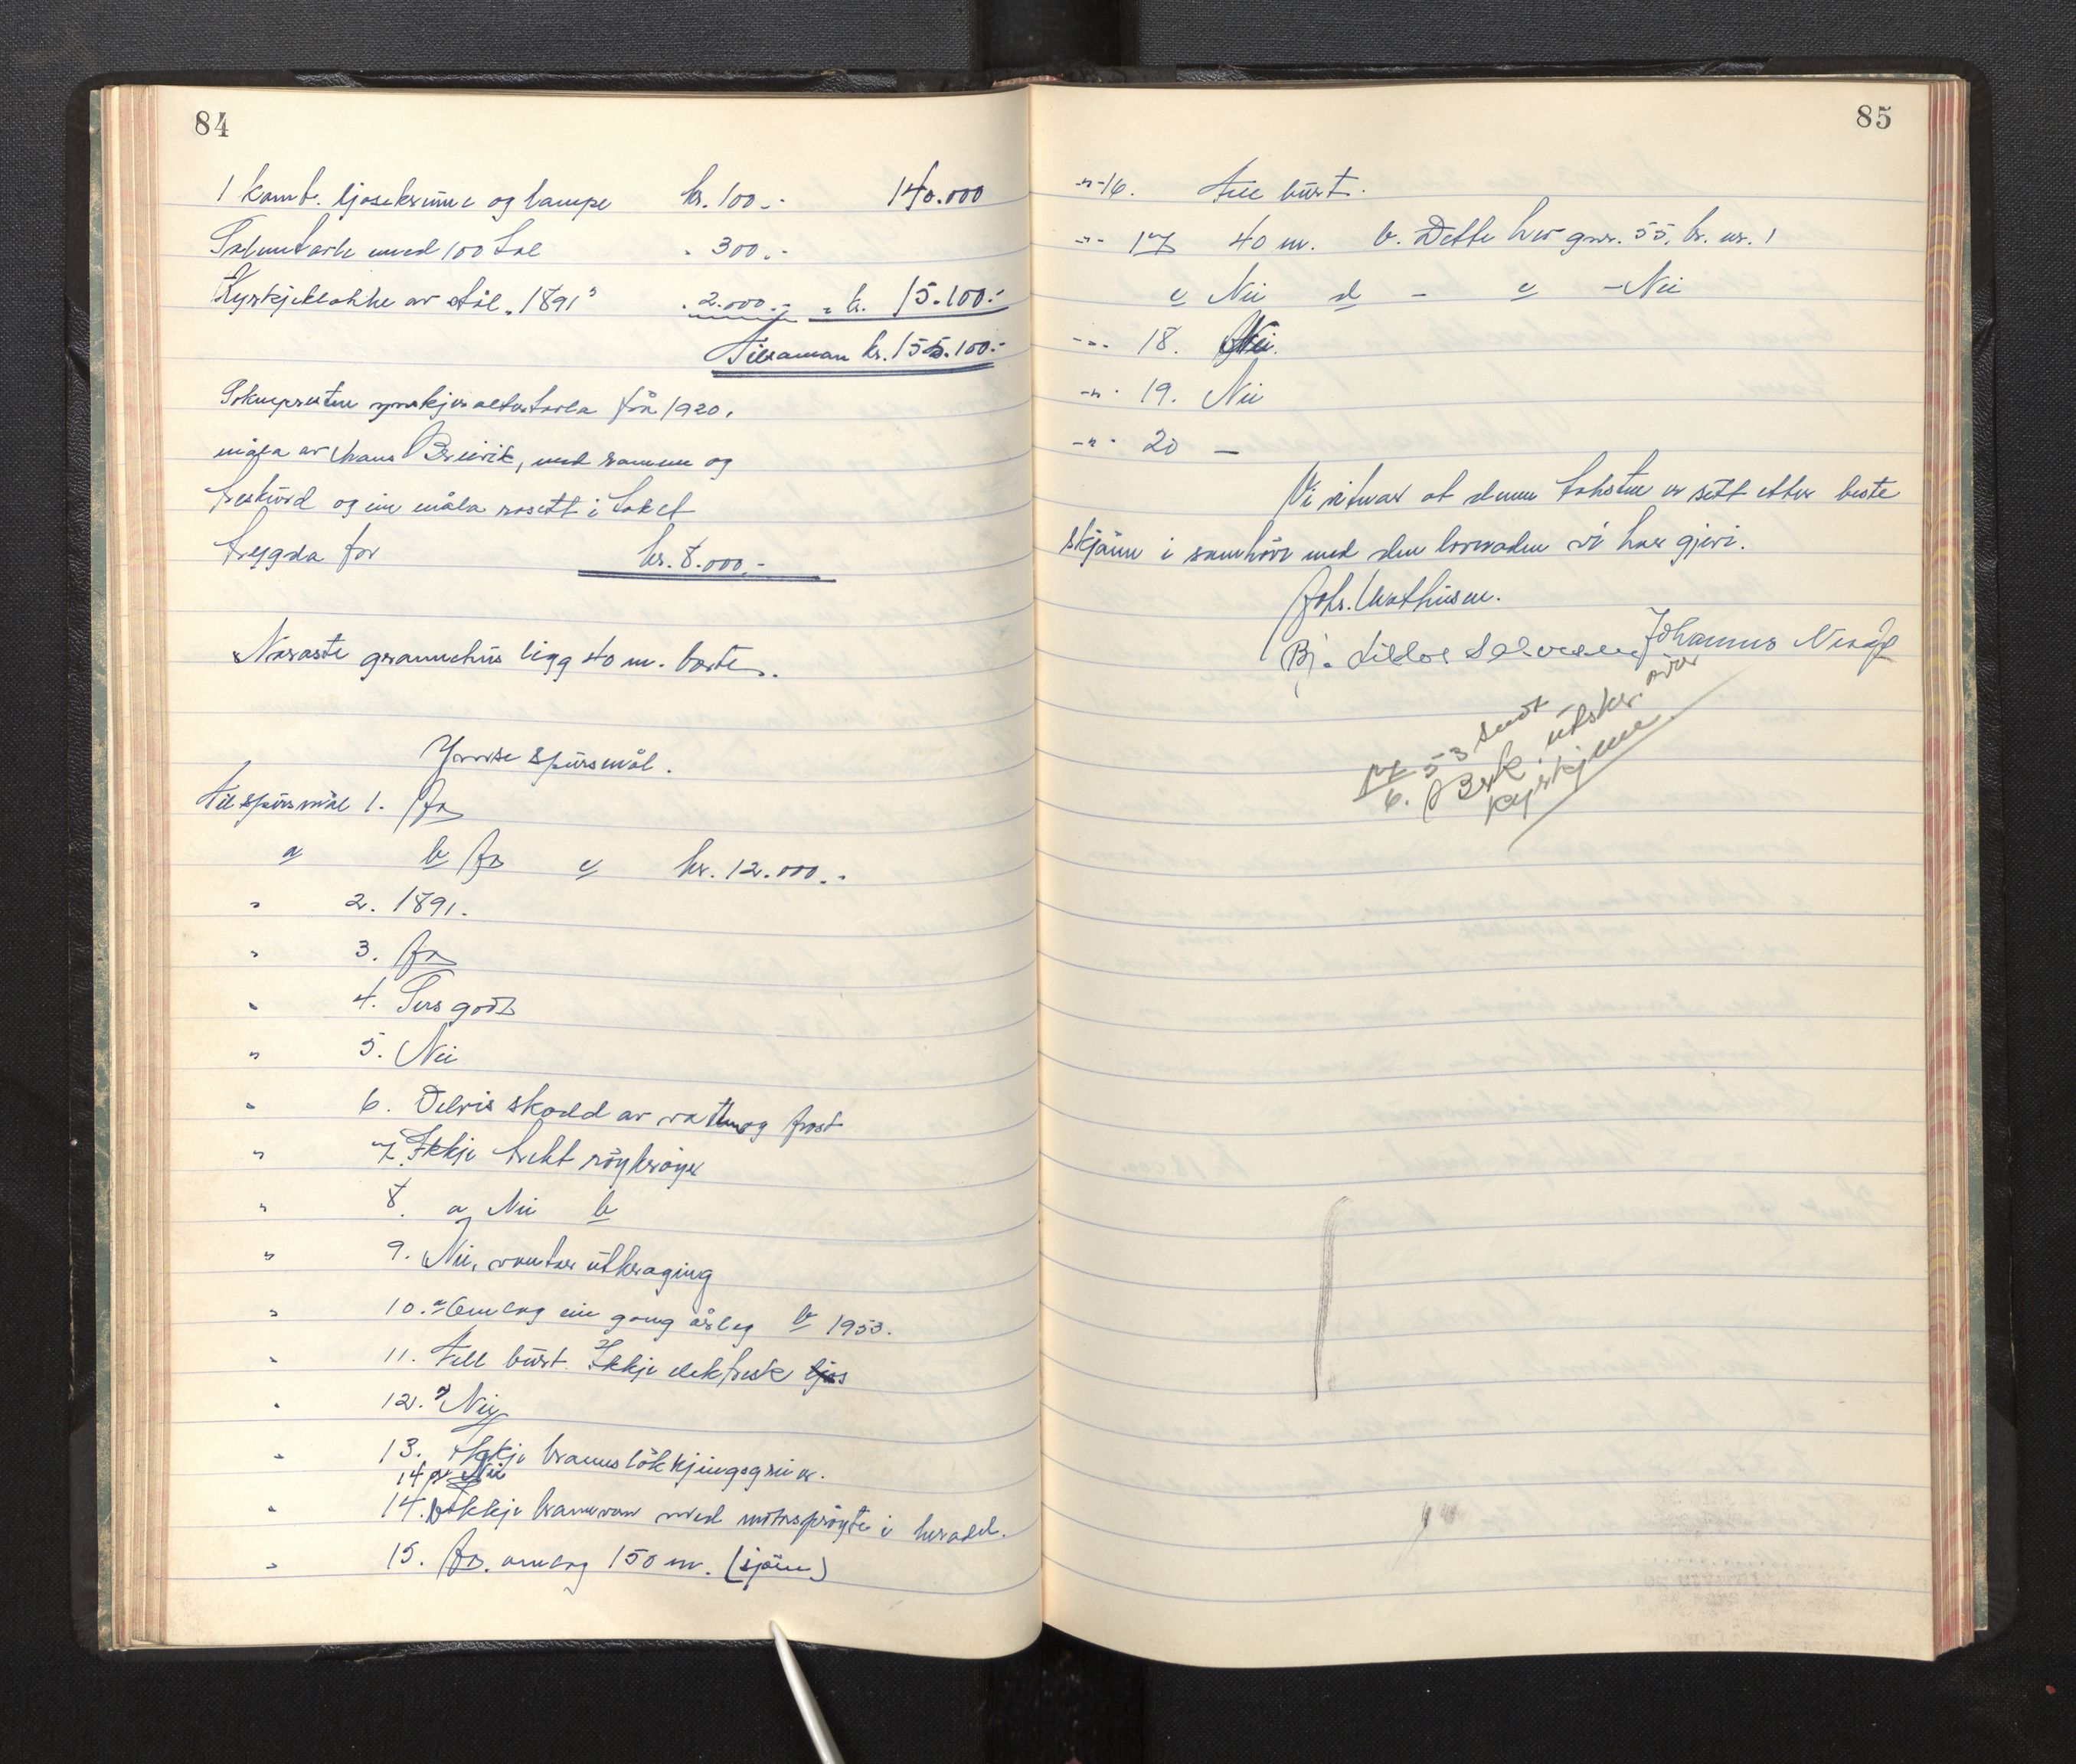 84
1 komb. ljosekrune og lampe kr. 100.- 140.000
Salmetavle med 100 tal " 300.-
Kyrkjeklokke av stål "1891" " 2.000.- = kr. 15.100.-
Tilsaman kr. 155.100.-
Soknepresten ynskjer altertavla frå 1920,
måla av Hans Breivik, med ramme og
treskurd og ein måla rosett i taket
trygda for kr. 8.000.-
Næraste grannehus ligg 40 m. borte.
Ymse spursmål.
Til spursmål 1. Ja
a b Ja c kr. 12.000.-
" 2. 1891.
" 3. Ja
" 4. Sers godt
" 5. Nei
" 6. Delvis skadd av vatn og frost
" 7. Ikkje trekt röykröyr
" 8. a Nei b
" 9. Nei, vantar utkraging
" 10. a Umlag ein gong årleg b 1953.
" 11. Tell burt. Ikkje elektrisk ljos
" 12. Nei
" 13. Ikkje brannslökkjingsgreier.
14 a Nei
" 14. b Ikkje brannvern med motorspröyte i heradet.
" 15. Ja. umlag 150 m. (sjöen)
85
-"- 16. Tell burt.
-"- 17 40 m. b. Dette har gnr. 55, br. nr. 1
c Nei d - e - Nei
-"- 18. Nei.
-"- 19. Nei
-"- 20 -
Vi vitnar at denne taksten er sett etter beste
skjönn i samhöve med den lovnaden vi har gjeve.
Johs. Mathisen.
Bj. Johannes
17/6. 53 sendt
utskr. over
kyrkjene